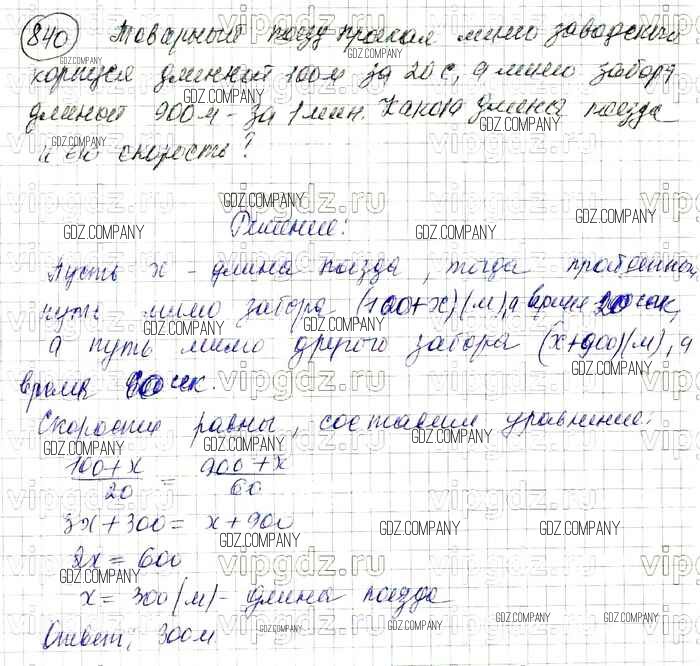 840 Товарный поезд проехал мимо заводского
корпуса длиной 100м за 20с, а мимо забора
длиной 900м - за 1 мин. Какова длина поезда
и его скорость?
Решение:
Пусть x - длина поезда, тогда пройденный
путь мимо забора (100+x)(м), а время 20 сек,
а путь мимо другого забора (x+900)(м), а
время 60 сек.
Скорости равны, составим уравнение:
100+x / 20 = 900+x / 60
3x+300 = x+900
2x = 600
x = 300(м) - длина поезда
Ответ: 300м